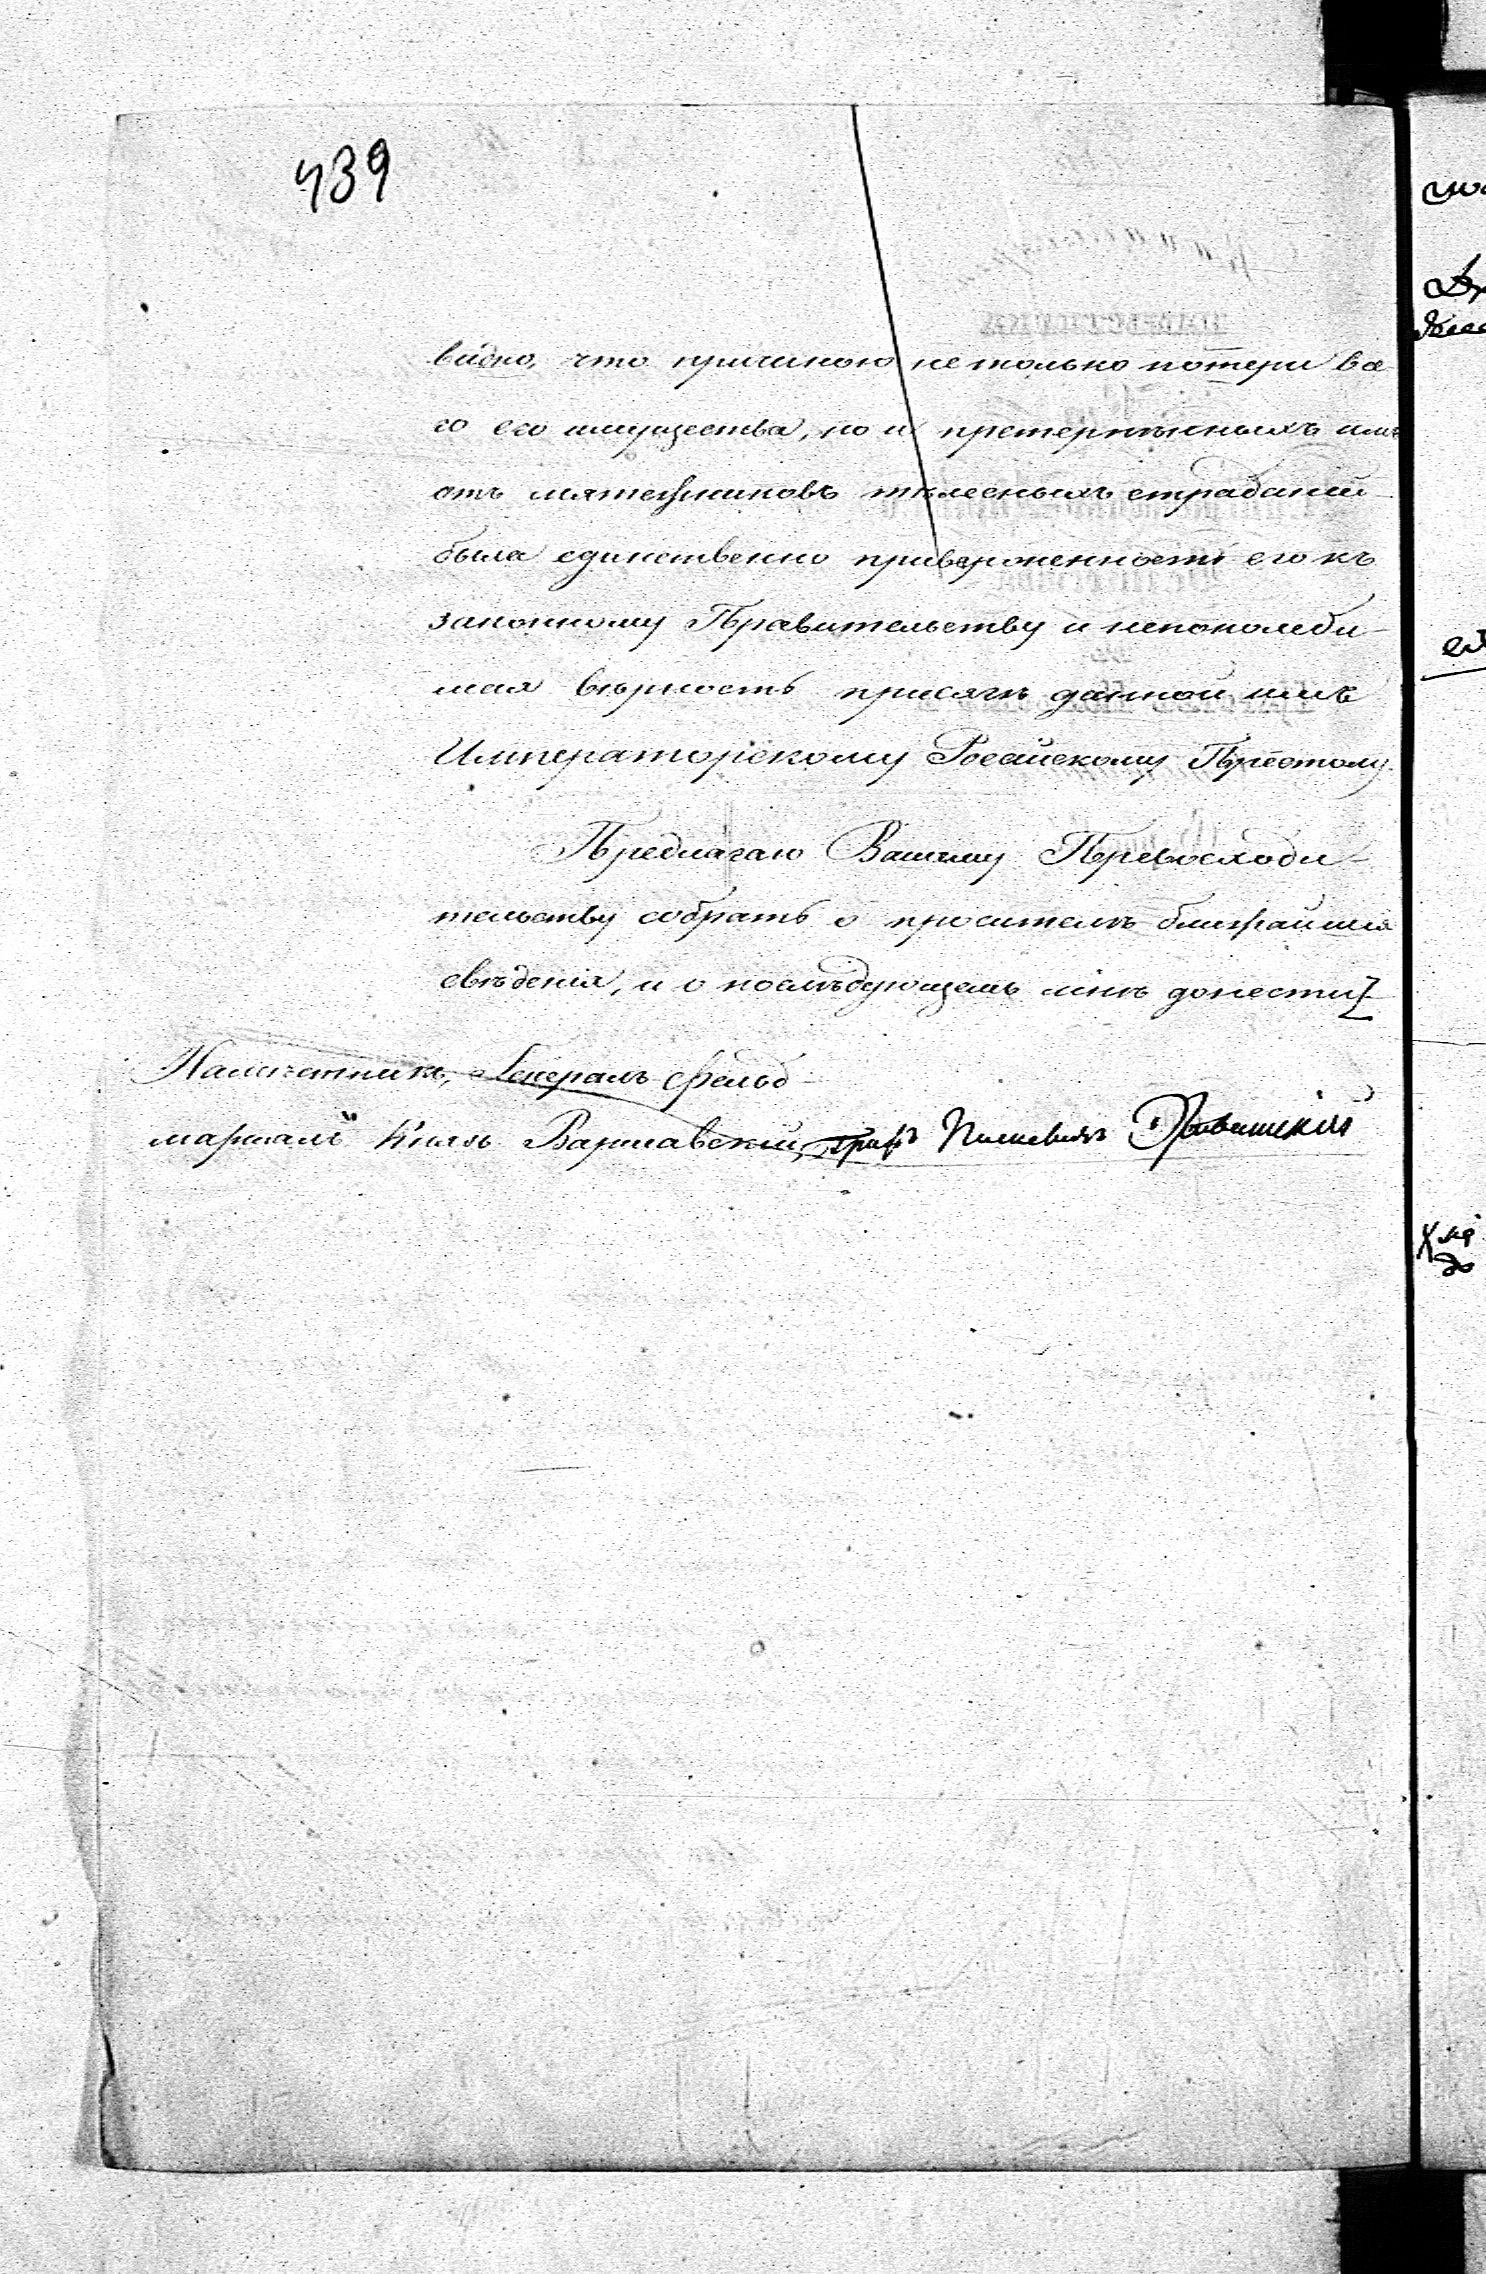 439
видно, что причиною не только потери все
го его имущества, но и претерпѣнныхъ имъ
отъ мятежниковъ тѣлесныхъ страданій
была единственно приверженность его къ
законному Правительству и непоколеби-
мая вѣрность присягѣ данной имъ
Императорскому Россійскому Престолу.
Предлагаю Вашему Превосходи-
тельству собрать о просителѣ ближайшія
свѣденія, и о послѣдующемъ мнѣ донести
Намѣстникъ, Генералъ Фельд-
маршалъ Князь Варшавскій, Графъ Паскевичъ Эриванскій